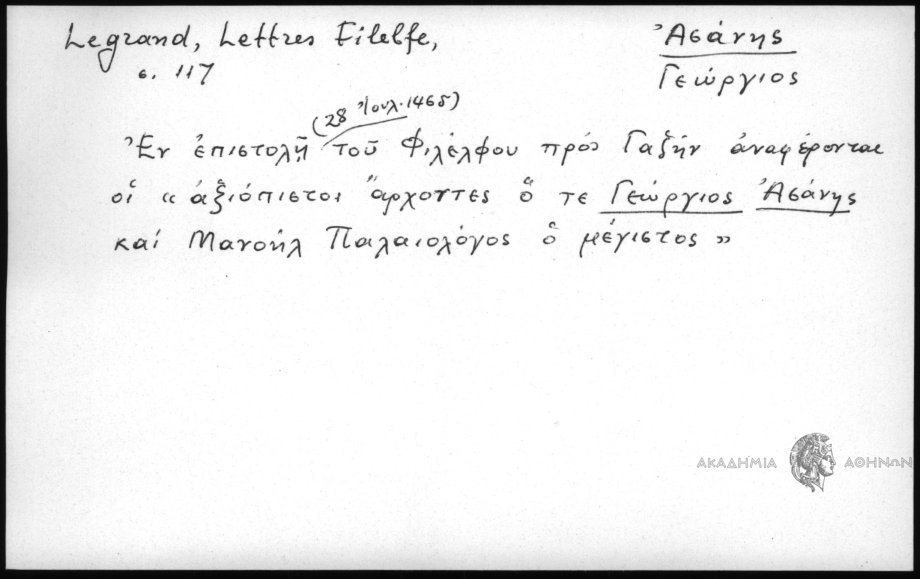 Legrand, Lettres Filelfe,
σ. 117
Ἀσάνης
Γεώργιος
(28 Ἰουλ. 1465)
Ἐν ἐπιστολῇ τοῦ Φιλέλφου πρὸς Γαζῆν ἀναφέρονται
οἱ «ἀξιόπιστοι ἄρχοντες ὅ τε Γεώργιος Ἀσάνης
καί Μανουήλ Παλαιολόγος ὁ μέγιστος»
ΑΚΑΔΗΜΙΑ ΑΘΗΝΩΝ